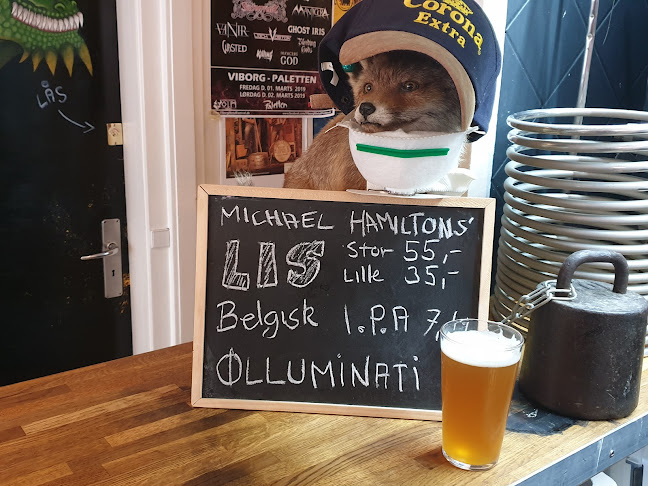 LÅS
MANTICORA
VANIR
GHOST IRIS
GOD
VIBORG - PALETTEN
FREDAG D. 01. MARTS 2019
LØRDAG D. 02. MARTS 2019
Paletten
Corona
Extra
MICHAEL HAMILTONS'
LIS Stor 55,-
Lille 35,-
Belgisk I.P.A
ØLLUMINATI